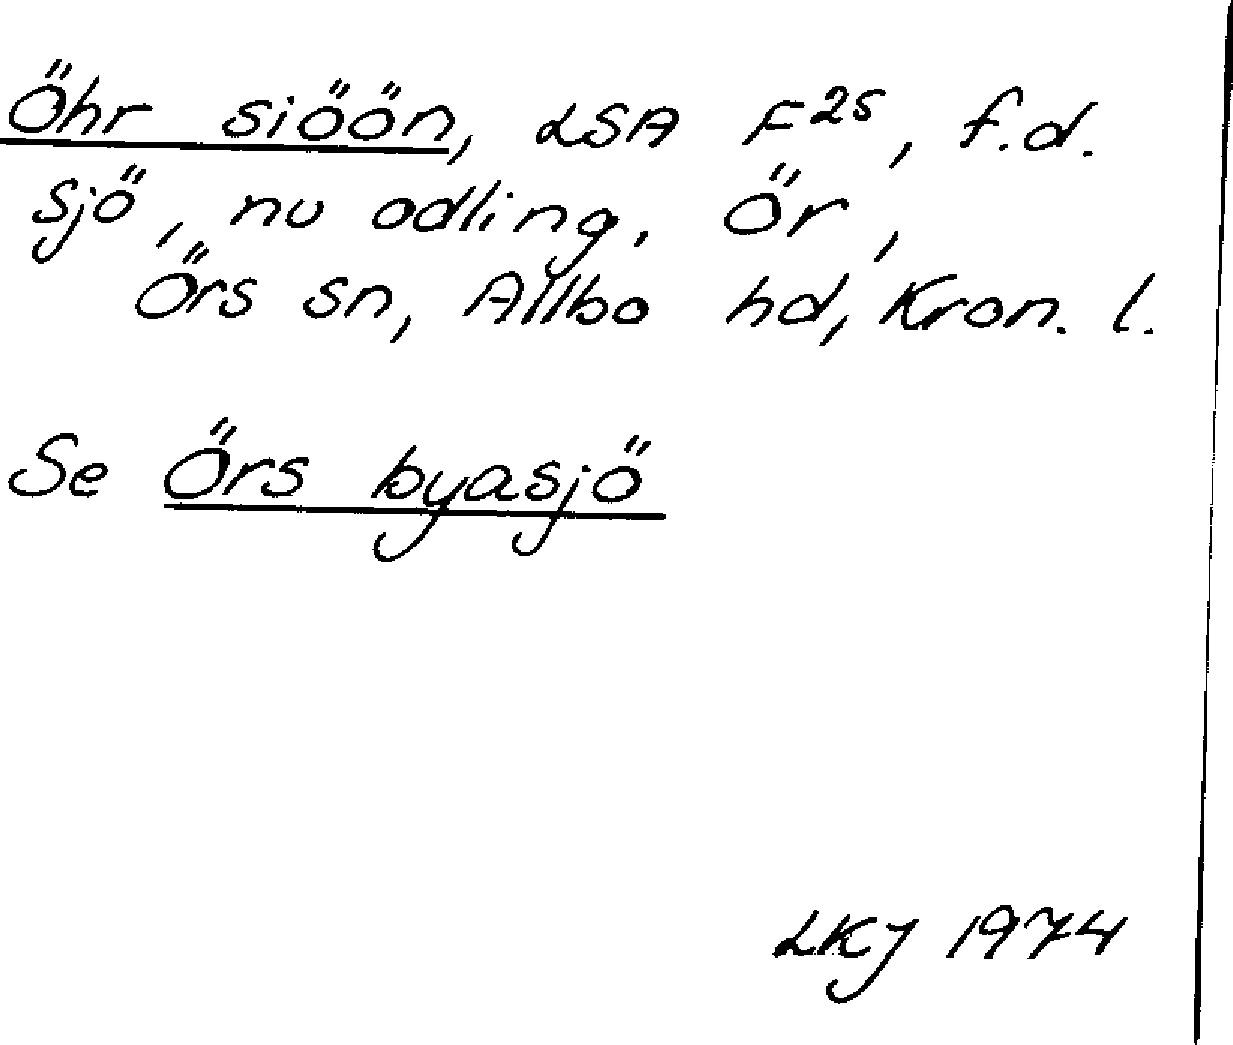 Öhr siöön, LSA F25, f.d.
sjö, nu odling, Ör,
Örs sn, Allbo hd, Kron. l.
Se Örs byasjö
LKJ 1974